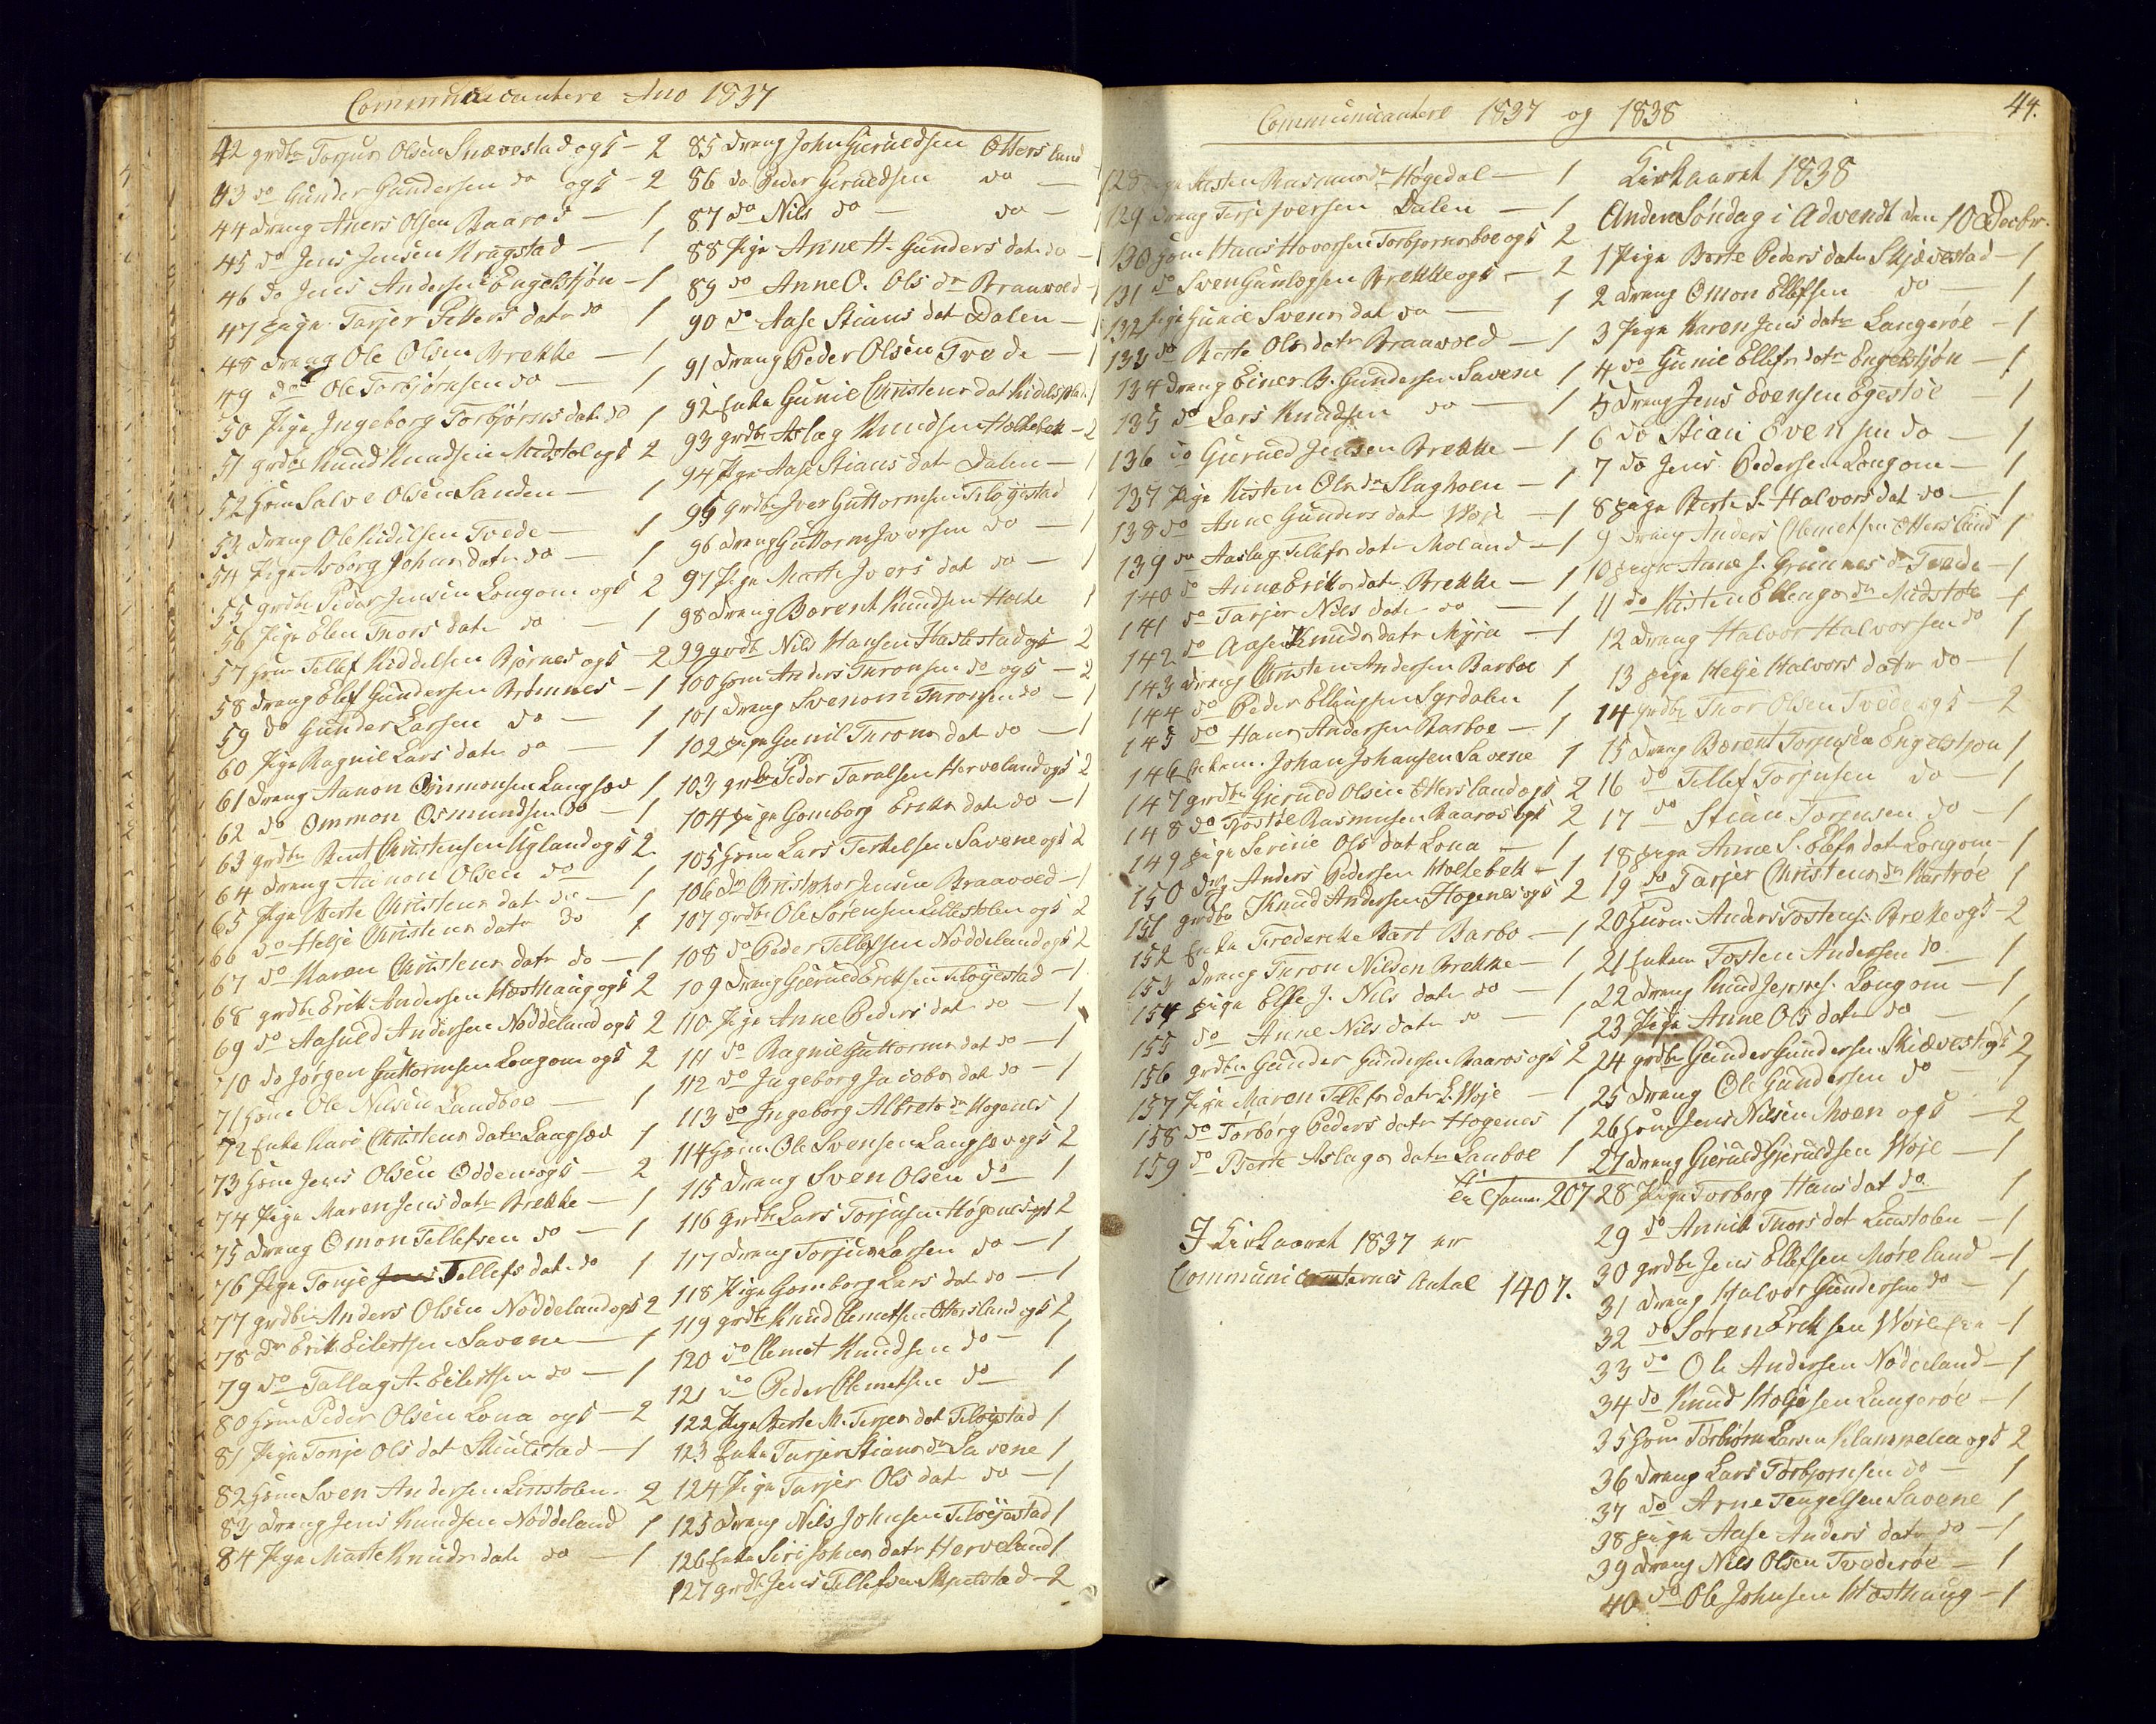 Communicantere Ano 1837
42 grdbr Torjus Olsen Snævestad ogs - 2
43 do Gunder Gundersen do ogs - 2
44 drang Aners Olsen Baaros - 1
45 do Jens Jensen Kragstad - 1
46 do Jens Andersen Engelstjøn - 1
47 Pige Tarjer Tellefs datr do 1
48 drang Ole Olsen Brekke - 1
49 do Ole Torbjørnsen do - 1
50 Pige Ingeborg Torbjørns datr do 1
51 grdbr Knud Knudsen Midstøl ogs 2
52 Hsm Salve Olsen Sanden - 1
53 drang Ole Kidilsen Tvede - 1
54 Pige Asborg Johns datr do - 1
55 grdbr Peder Jensen Longom ogs 2
56 Pige Elen Thors datr do - 1
57 Hsm Tellef Kiddelsen Bjørnes ogs - 2
58 drang Elef Gundersen Brømnes - 1
59 do Gunder Larsen do - 1
60 Pige Ragnil Lars datr do - 1
61 drang Aanon Ommonsen Langsæe 1
62 do Ommon Osmundsen do - 1
63 grdbr Bent Christensen Ugland ogs 2
64 drang Aanon Olsen do - 1
65 Pige Berte Christens datr do - 1
66 do Helje Christens datr do 1
67 do Karen Christens datr do - 1
68 grdbr Erik Andersen Høsthaug ogs 2
69 do Aasuld Andersen Nøddeland ogs 2
70 do Jørgen Guttormsen Longom ogs 2
71 Hsm Ole Nilsen Landboe - 1
72 Enke Kari Christens datr Langsæe 1
73 Hsm Jens Olsen Odden ogs - 2
74 Pige Maren Jens datr Brekke - 1
75 drang Omon Tellefsen do - 1
76 Pige Tonje Tellefs datr do 1
77 grdbr Anders Olsen Nøddeland ogs 2
78 Dr Erik Eilertsen Savene - 1
79 do Tallag A. Eilertsen do - 1
80 Hsm Peder Olsen Lona ogs - 2
81 Pige Tonje Ols dat Skiulstad - 1
82 Hsm Sven Andersen Linstolen - 2
83 drang Jens Knudsen Nøddeland 1
84 Pige Marte Knuds datr do - 1
85 drang John Gieruldsen Ottersland
86 do Peder Gieruldsen do -
87 do Nils do - do -
88 Pige Anne H. Gunders datr do - 1
89 do Anne O. Ols dr Braavold - 1
90 do Aase Stians dat Dalen - 1
91 drang Peder Olsen Tvede - 1
92 Enke Gunil Christens dat 1
93 grdbr Aslag Knudsen Holtebek - 2
94 Pige Aase Stians datr Dalen - 1
95 grdbr Iver Guttormsen Fløystad 1
96 drang Guttorm Iversen do - 1
97 Pige Marte Ivers dat do - 1
98 drang Barent Knudsen Holte 1
99 grdbr Nils Hansen Hasbstad ogs - 2
100 Hsm Anders Thronsen do ogs - 2
101 drang Svenom Thronsen do - 1
102 Pige Gunil Throns dat do - 1
103 grdbr Peder Taralsen Herveland ogs 2
104 Pige Gomborg Eriks datr do - 1
105 Hsm Lars Terkelsen Savene ogs 2
106 Dr Cristopher Jensen Braavold - 1
107 grdbr Ole Sørensen Lillestolen ogs 2
108 do Peder Tellefsen Nøddeland ogs 2
109 drang Gieruld Eriksen Fløystad - 1
110 Pige Anne Peders dat do - 1
111 do Ragnil Guttorms dat do - 1
112 do Ingeborg Jacobs dat do - 1
113 do Ingeborg Albrets dr Hogenes 1
114 Hsm Ole Svensen Langsæe ogs 2
115 drang Sven Olsen do 1
116 grdbr Lars Torjusen Høgenes ogs 2
117 drang Torjus Larsen do - 1
118 Pige Gomborg Lars dat do - 1
119 grdbr Knud Clemetsen Ottersland ogs 2
120 do Clemet Knudsen do - 1
121 do Peder Clemetsen do 1
122 Pige Berte M. Terjes dat Fløystad 1
123 Enke Tarjer Stians dr Savene 1
124 Pige Tarjer Ols dat do - 1
125 drang Nils Johnsen Fløystad 1
126 Enke Siri Johns datr Herveland 1
127 grdbr Jens Tellefsen Skiulstad - 2
Communicantere 1837 og 1838
44.
128 Pige Kisten Rasmus dr Høgedal - 1
129 drang Terje Iversen Dalen - 1
130 Hsm Hans Hoversen Torbjørnsboe ogs 2
131 do Sven Gunlegsen Brekke ogs - 2
132 Pige Gunil Svens dat do - 1
133 do Berte Ols datr Braavold - 1
134 drang Einer B. Gundersen Savene 1
135 do Lars Knudsen do - 1
136 do Gieruld Jensen Brekke - 1
137 Pige Kisten Ols dr Slagholen - 1
138 do Anne Gunders datr Woje - 1
139 do Aaslag Tellefs datr Moland - 1
140 do Anne Eriks datr Brekke - 1
141 do Tarjer Nils datr do - 1
142 do Aase Knuds datr Myra - 1
143 drang Christen Andersen Barboe 1
144 do Peder Ellingsen Syrdalen 1
145 do Hans Andersen Barboe - 1
146 Enkem. Johan Johansen Savene 1
147 grdbr Gieruld Olsen Ottersland ogs 2
148 do Tostøl Rasmusen Baaros ogs 2
149 Pige Serine Ols dat Lona - 1
150 Drg Anders Pedersen Holtebek - 1
151 grdbr Knud Andersen Hogenes ogs 2
152 Enke Frederekke Bart Barbo - 1
153 drang Thron Nilsen Brekke - 1
154 Pige Else J. Nils datr do - 1
155 do Anne Nils datr do - 1
156 grdbr Gunder Gundersen Baaros ogs 2
157 Pige Maren Tellefs datr L. Woje - 1
158 do Torborg Peders datr Hogenes 1
159 do Berte Aslags datr Lanboe 1
207
I Kirkaaret 1837 er
Communicanternes Antal 1407.
Kirkaaret 1838
Anden Søndag i Advendt den 10 Decbr.
1 Pige Berte Peders datr Skjævestad - 1
2 drang Omon Ellefsen do - 1
3 Pige Karen Jens datr Langerøe - 1
4 do Gunil Ellefs datr Engelstjøn - 1
5 drang Jens Evensen Egestøl - 1
6 do Stian Evensen do - 1
7 do Jens Pedersen Longom - 1
8 Pige Berte S. Halvors dat do - 1
9 drang Anders Clemetsen Ottersland 1
10 Pige Anne J. Grunnes dr Tvede - 1
11 do Kisten Ellengs dr Midstøl - 1
12 drang Halvor Halvorsen do 1
13 Pige Helje Halvors datr do - 1
14 grdbr Thor Olsen Tvede ogs - 2
15 drang Barent Torjusen Engelstjøn 1
16 do Tellef Torjusen do - 1
17 do Stian Torjusen do - 1
18 Pige Anne S. Elefs dat Longom - 1
19 do Tarjer Christens dr Hartrøe 1
20 Husm. Anders Tostens. Breke ogs - 2
21 Enkem Tosten Andersen do 1
22 drang Knud Jenns. Longom - 1
23 Pige Anne Ols datr do - 1
24 grdbr Gunder Gundersen Skiævest ogs 2
25 drang Ole Gundersen do - 1
26 Hsm Jens Nilsen Moen ogs - 2
27 drang Gieruld Gieruldsen Woje - 1
28 Pige Torborg Hans dat do 1
29 do Annik Thors dat Linstolen - 1
30 grdbr Jens Ellefsen Møreland - 1
31 drang Halvor Gundersen do - 1
32 do Søren Eriksen Woje - 1
33 do Ole Andersen Nøddeland - 1
34 do Knud Holjesen Langerøe - 1
35 Hsm Torbiørn Larsen Klammelea ogs 2
36 drang Lars Torbjørnsen do - 1
37 do Arne Tengelsen Savene 1
38 Pige Aase Anders datr do - 1
39 drang Nils Olsen Tvederøe - 1
40 do Ole Johnsen Høsthaug - 1